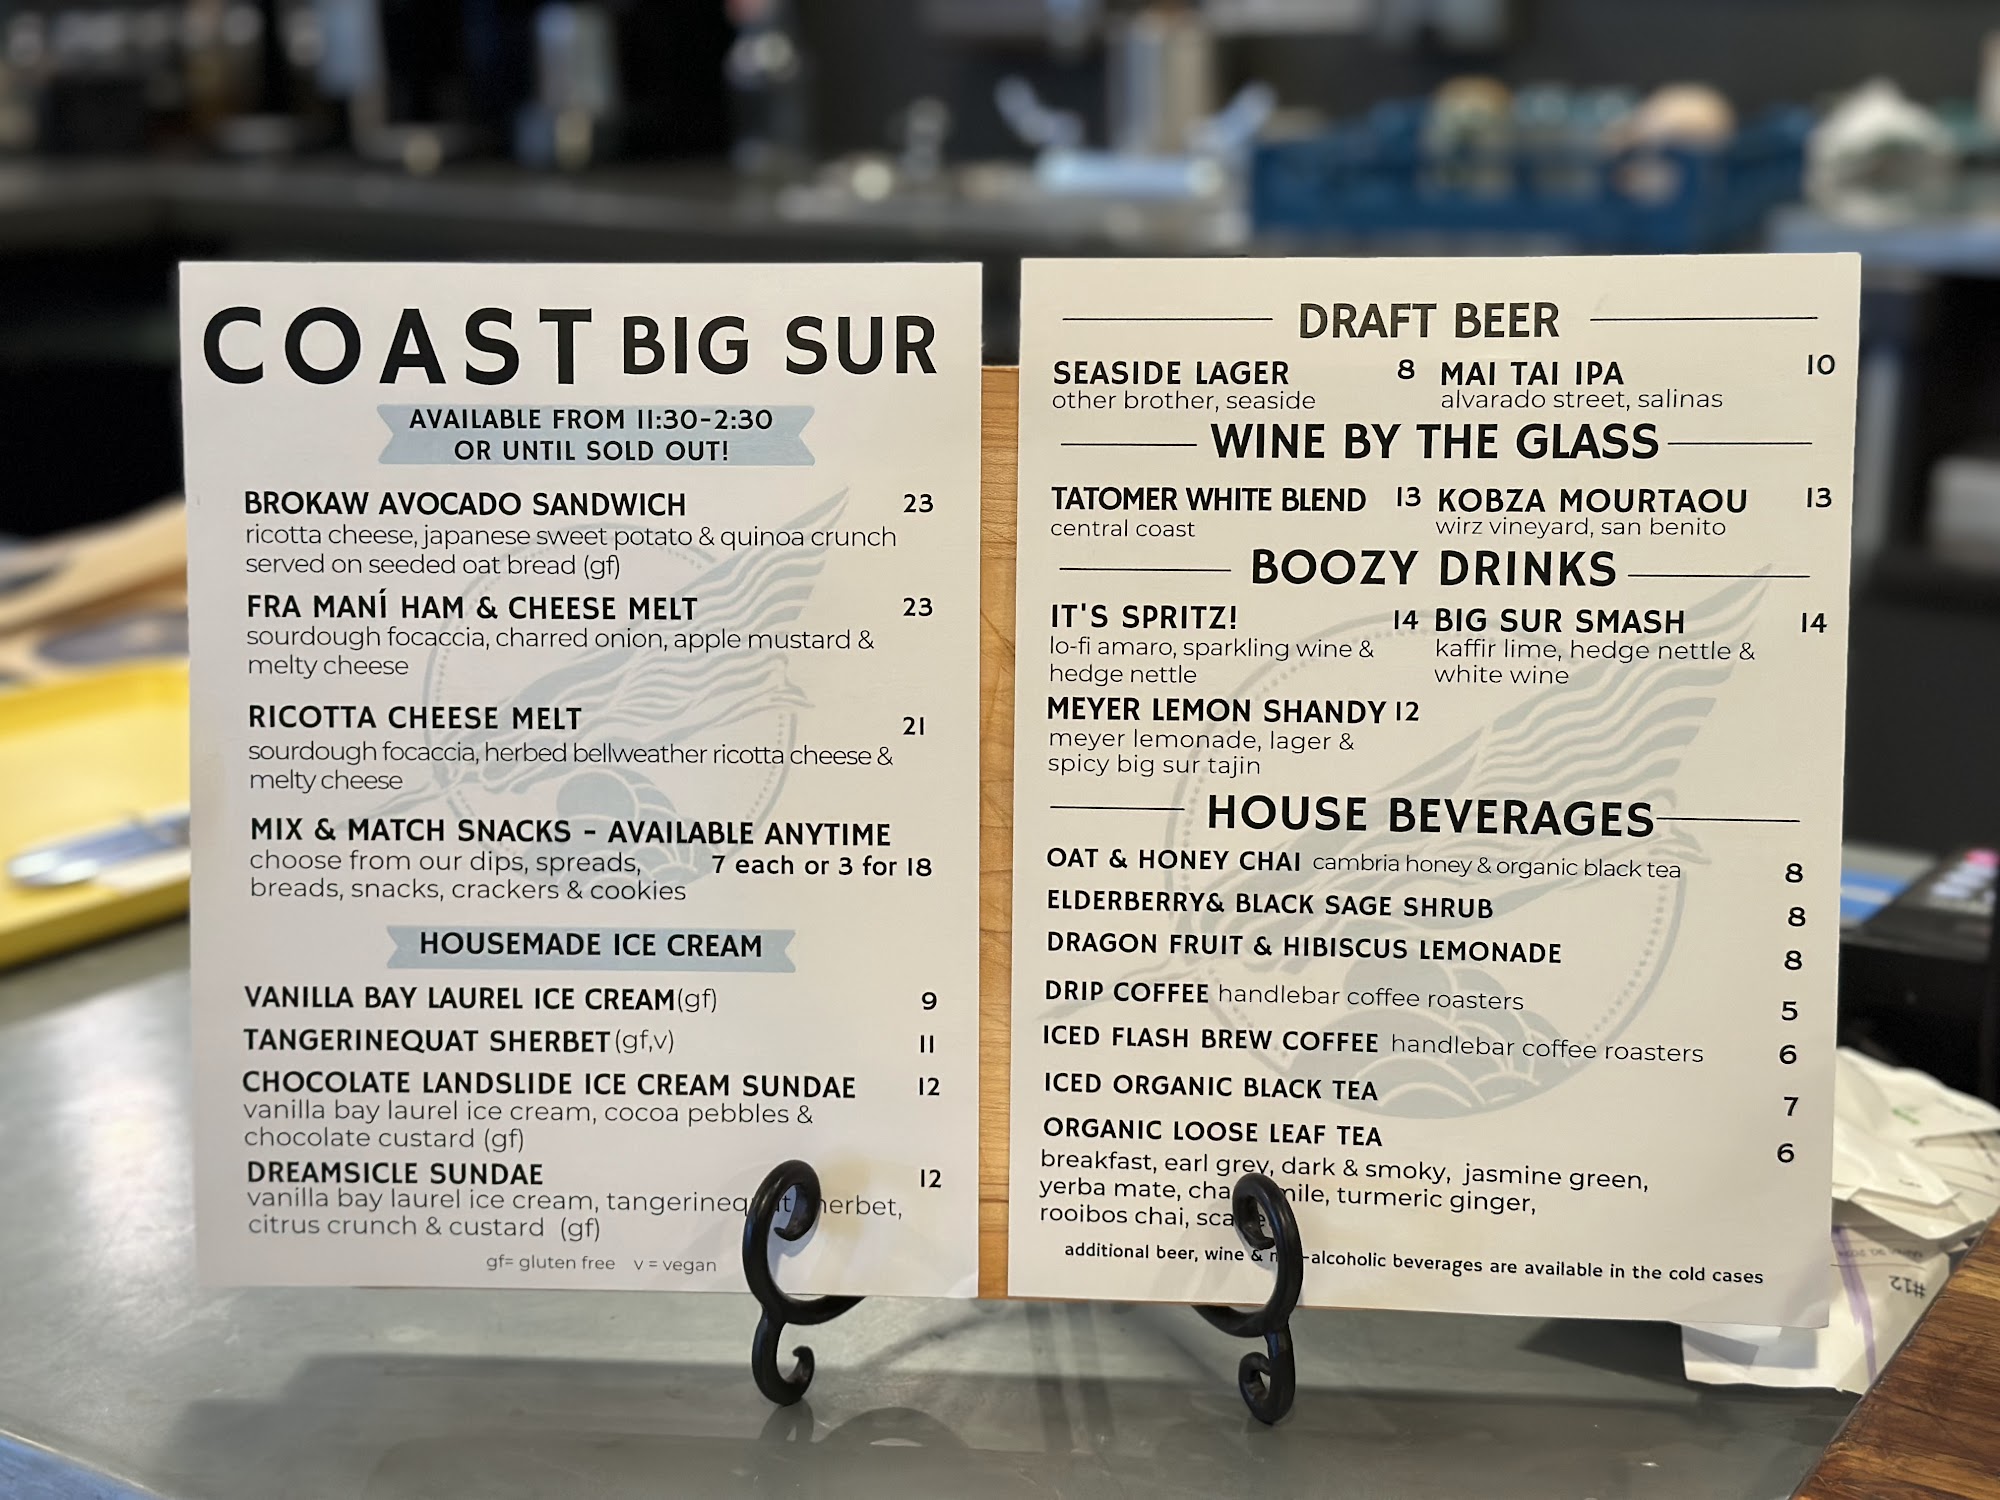 COAST BIG SUR
AVAILABLE FROM 11:30-2:30
OR UNTIL SOLD OUT!
BROKAW AVOCADO SANDWICH 23
ricotta cheese, japanese sweet potato & quinoa crunch
served on seeded oat bread (gf)
FRA MANÍ HAM & CHEESE MELT 23
sourdough focaccia, charred onion, apple mustard &
melty cheese
RICOTTA CHEESE MELT 21
sourdough focaccia, herbed bellweather ricotta cheese &
melty cheese
MIX & MATCH SNACKS - AVAILABLE ANYTIME
choose from our dips, spreads, 7 each or 3 for 18
breads, snacks, crackers & cookies
HOUSEMADE ICE CREAM
VANILLA BAY LAUREL ICE CREAM(gf) 9
TANGERINEQUAT SHERBET (gf,v) 11
CHOCOLATE LANDSLIDE ICE CREAM SUNDAE 12
vanilla bay laurel ice cream, cocoa pebbles &
chocolate custard (gf)
DREAMSICLE SUNDAE 12
vanilla bay laurel ice cream, tangerinequat sherbet,
citrus crunch & custard (gf)
gf= gluten free v = vegan
DRAFT BEER
SEASIDE LAGER 8 MAI TAI IPA 10
other brother, seaside alvarado street, salinas
WINE BY THE GLASS
TATOMER WHITE BLEND 13 KOBZA MOURTAOU 13
central coast wirz vineyard, san benito
BOOZY DRINKS
IT'S SPRITZ! 14 BIG SUR SMASH 14
lo-fi amaro, sparkling wine & kaffir lime, hedge nettle &
hedge nettle white wine
MEYER LEMON SHANDY 12
meyer lemonade, lager &
spicy big sur tajin
HOUSE BEVERAGES
OAT & HONEY CHAI cambria honey & organic black tea 8
ELDERBERRY& BLACK SAGE SHRUB 8
DRAGON FRUIT & HIBISCUS LEMONADE 8
DRIP COFFEE handlebar coffee roasters 5
ICED FLASH BREW COFFEE handlebar coffee roasters 6
ICED ORGANIC BLACK TEA 7
ORGANIC LOOSE LEAF TEA 6
breakfast, earl grey, dark & smoky, jasmine green,
yerba mate, chamomile, turmeric ginger,
rooibos chai,
additional beer, wine & non-alcoholic beverages are available in the cold cases
#12